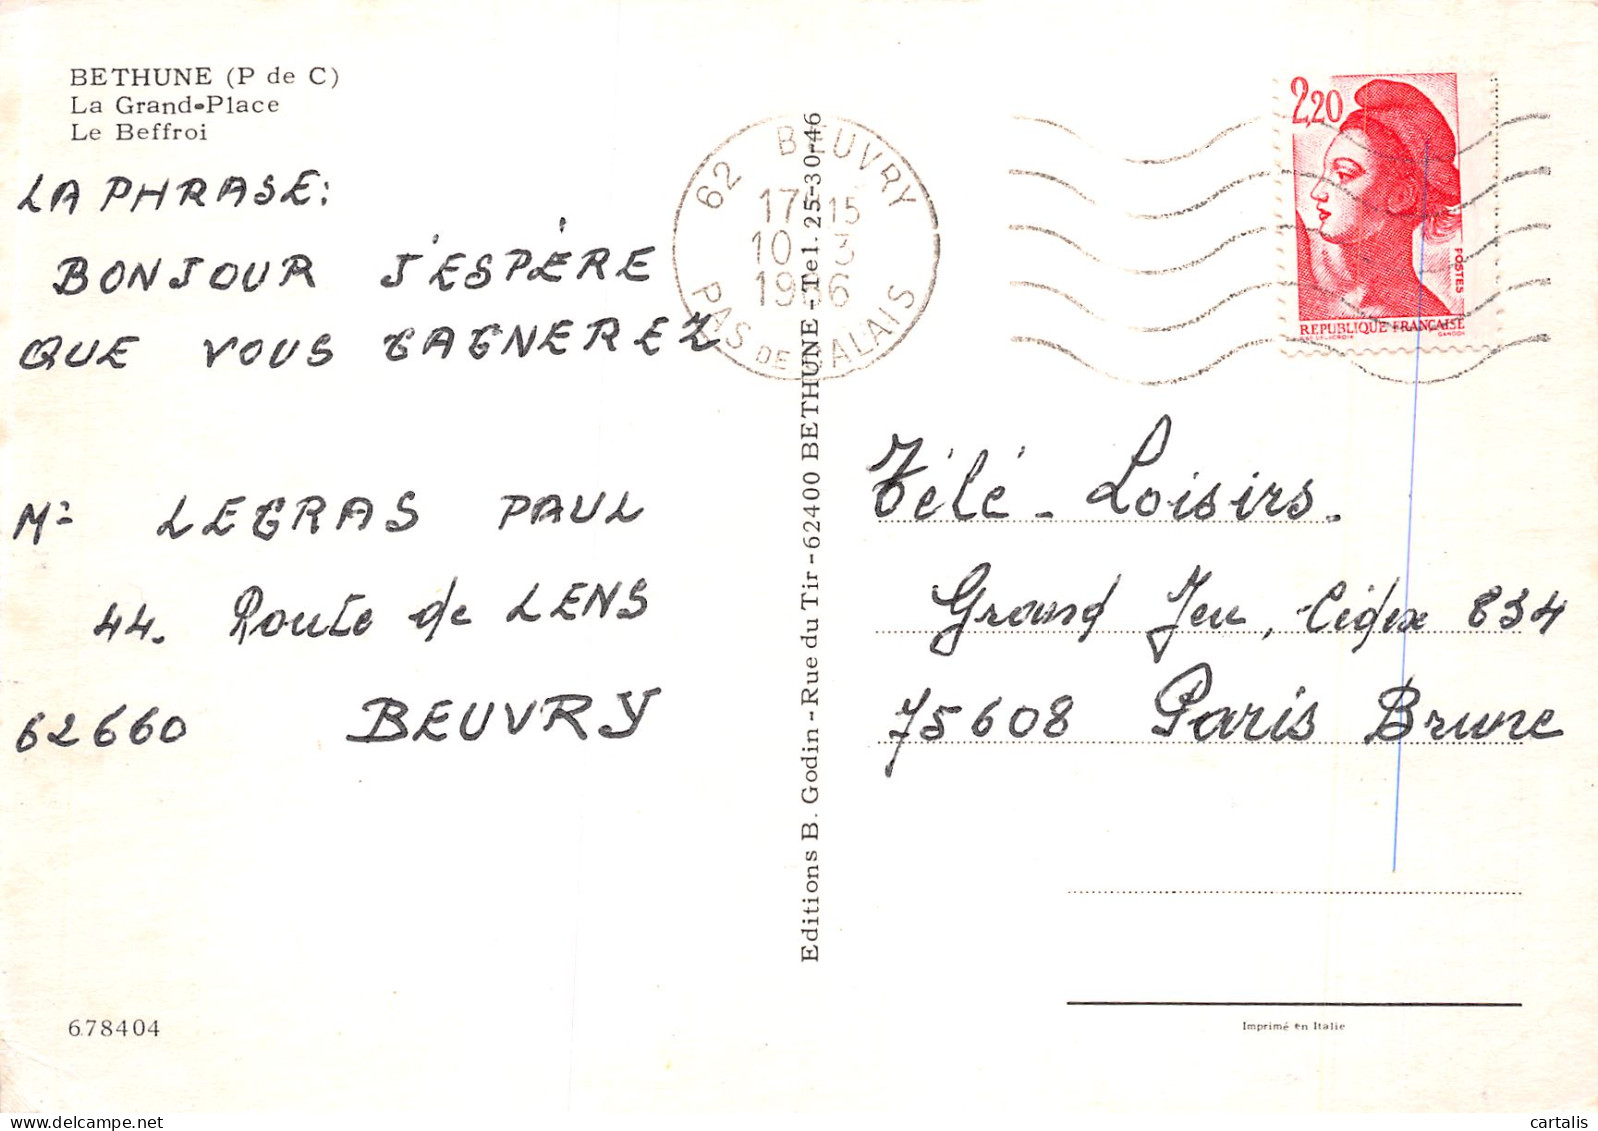 BETHUNE (P de C)
La Grand-Place
Le Beffroi
LA PHRASE:
BONJOUR J'ESPÈRE
QUE VOUS GAGNEREZ
Mr LEGRAS PAUL
44. Route de LENS
62660 BEUVRY
678404
Editions B. Godin - Rue du Tir - 62400 BETHUNE - Tel. 25-30-46
62 BEUVRY
17 15
10 3
1986
PAS DE CALAIS
2,20
POSTES
REPUBLIQUE FRANÇAISE
GANDON
Télé - Loisirs.
Grand Jeu, Cédex 834
75608 Paris Brune
Imprimé en Italie
cartalis